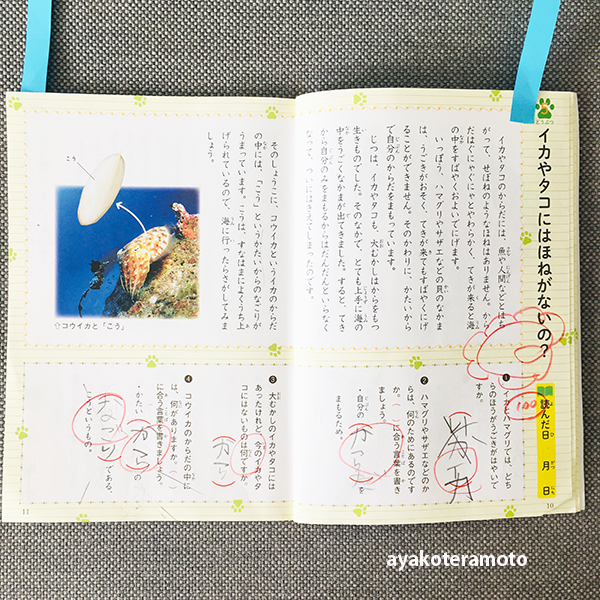 どうぶつ
イカやタコにはほねがないの？
イカやタコのからだには、魚や人間などとはち
がって、せぼねのようなほねはありません。から
だはぐにゃぐにゃとやわらかく、てきが来ると海
の中をすばやくおよいでにげます。
いっぽう、ハマグリやサザエなどの貝のなかま
は、うごきがおそく、てきが来てもすばやくにげ
ることができません。そのかわりに、かたいから
で自分のからだをまもっています。
じつは、イカやタコも、大むかしはからをもつ
生きものでした。そのなかで、とても上手に海の
中をうごくなかまが出てきました。すると、てき
から自分のみをまもるからはだんだんといらなく
なって、ついにはきえてしまったのです。
読んだ日　月　日
100
❶ イカとハマグリでは、どち
らのほうがうごきがはやいで
すか。
イカ
❷ ハマグリやサザエなどのか
らは、何のためにあるのです
か。（　）に合う言葉を書き
ましょう。
・自分の（からだ）を
まもるため。
10
そのしょうこに、コウイカというイカのからだ
の中には、「こう」というかたいからのなごりが
うまっています。こうは、すなはまによくうち上
げられているので、海に行ったらさがしてみま
しょう。
こう
⇧コウイカと「こう」
❸ 大むかしのイカやタコには
あったけれど、今のイカやタ
コにはないものは何ですか。
から
❹ コウイカのからだの中に
は、何がありますか。（　）
に合う言葉を書きましょう。
・かたい（からの
なごり）である
こうというもの。
11
ayakoteramoto